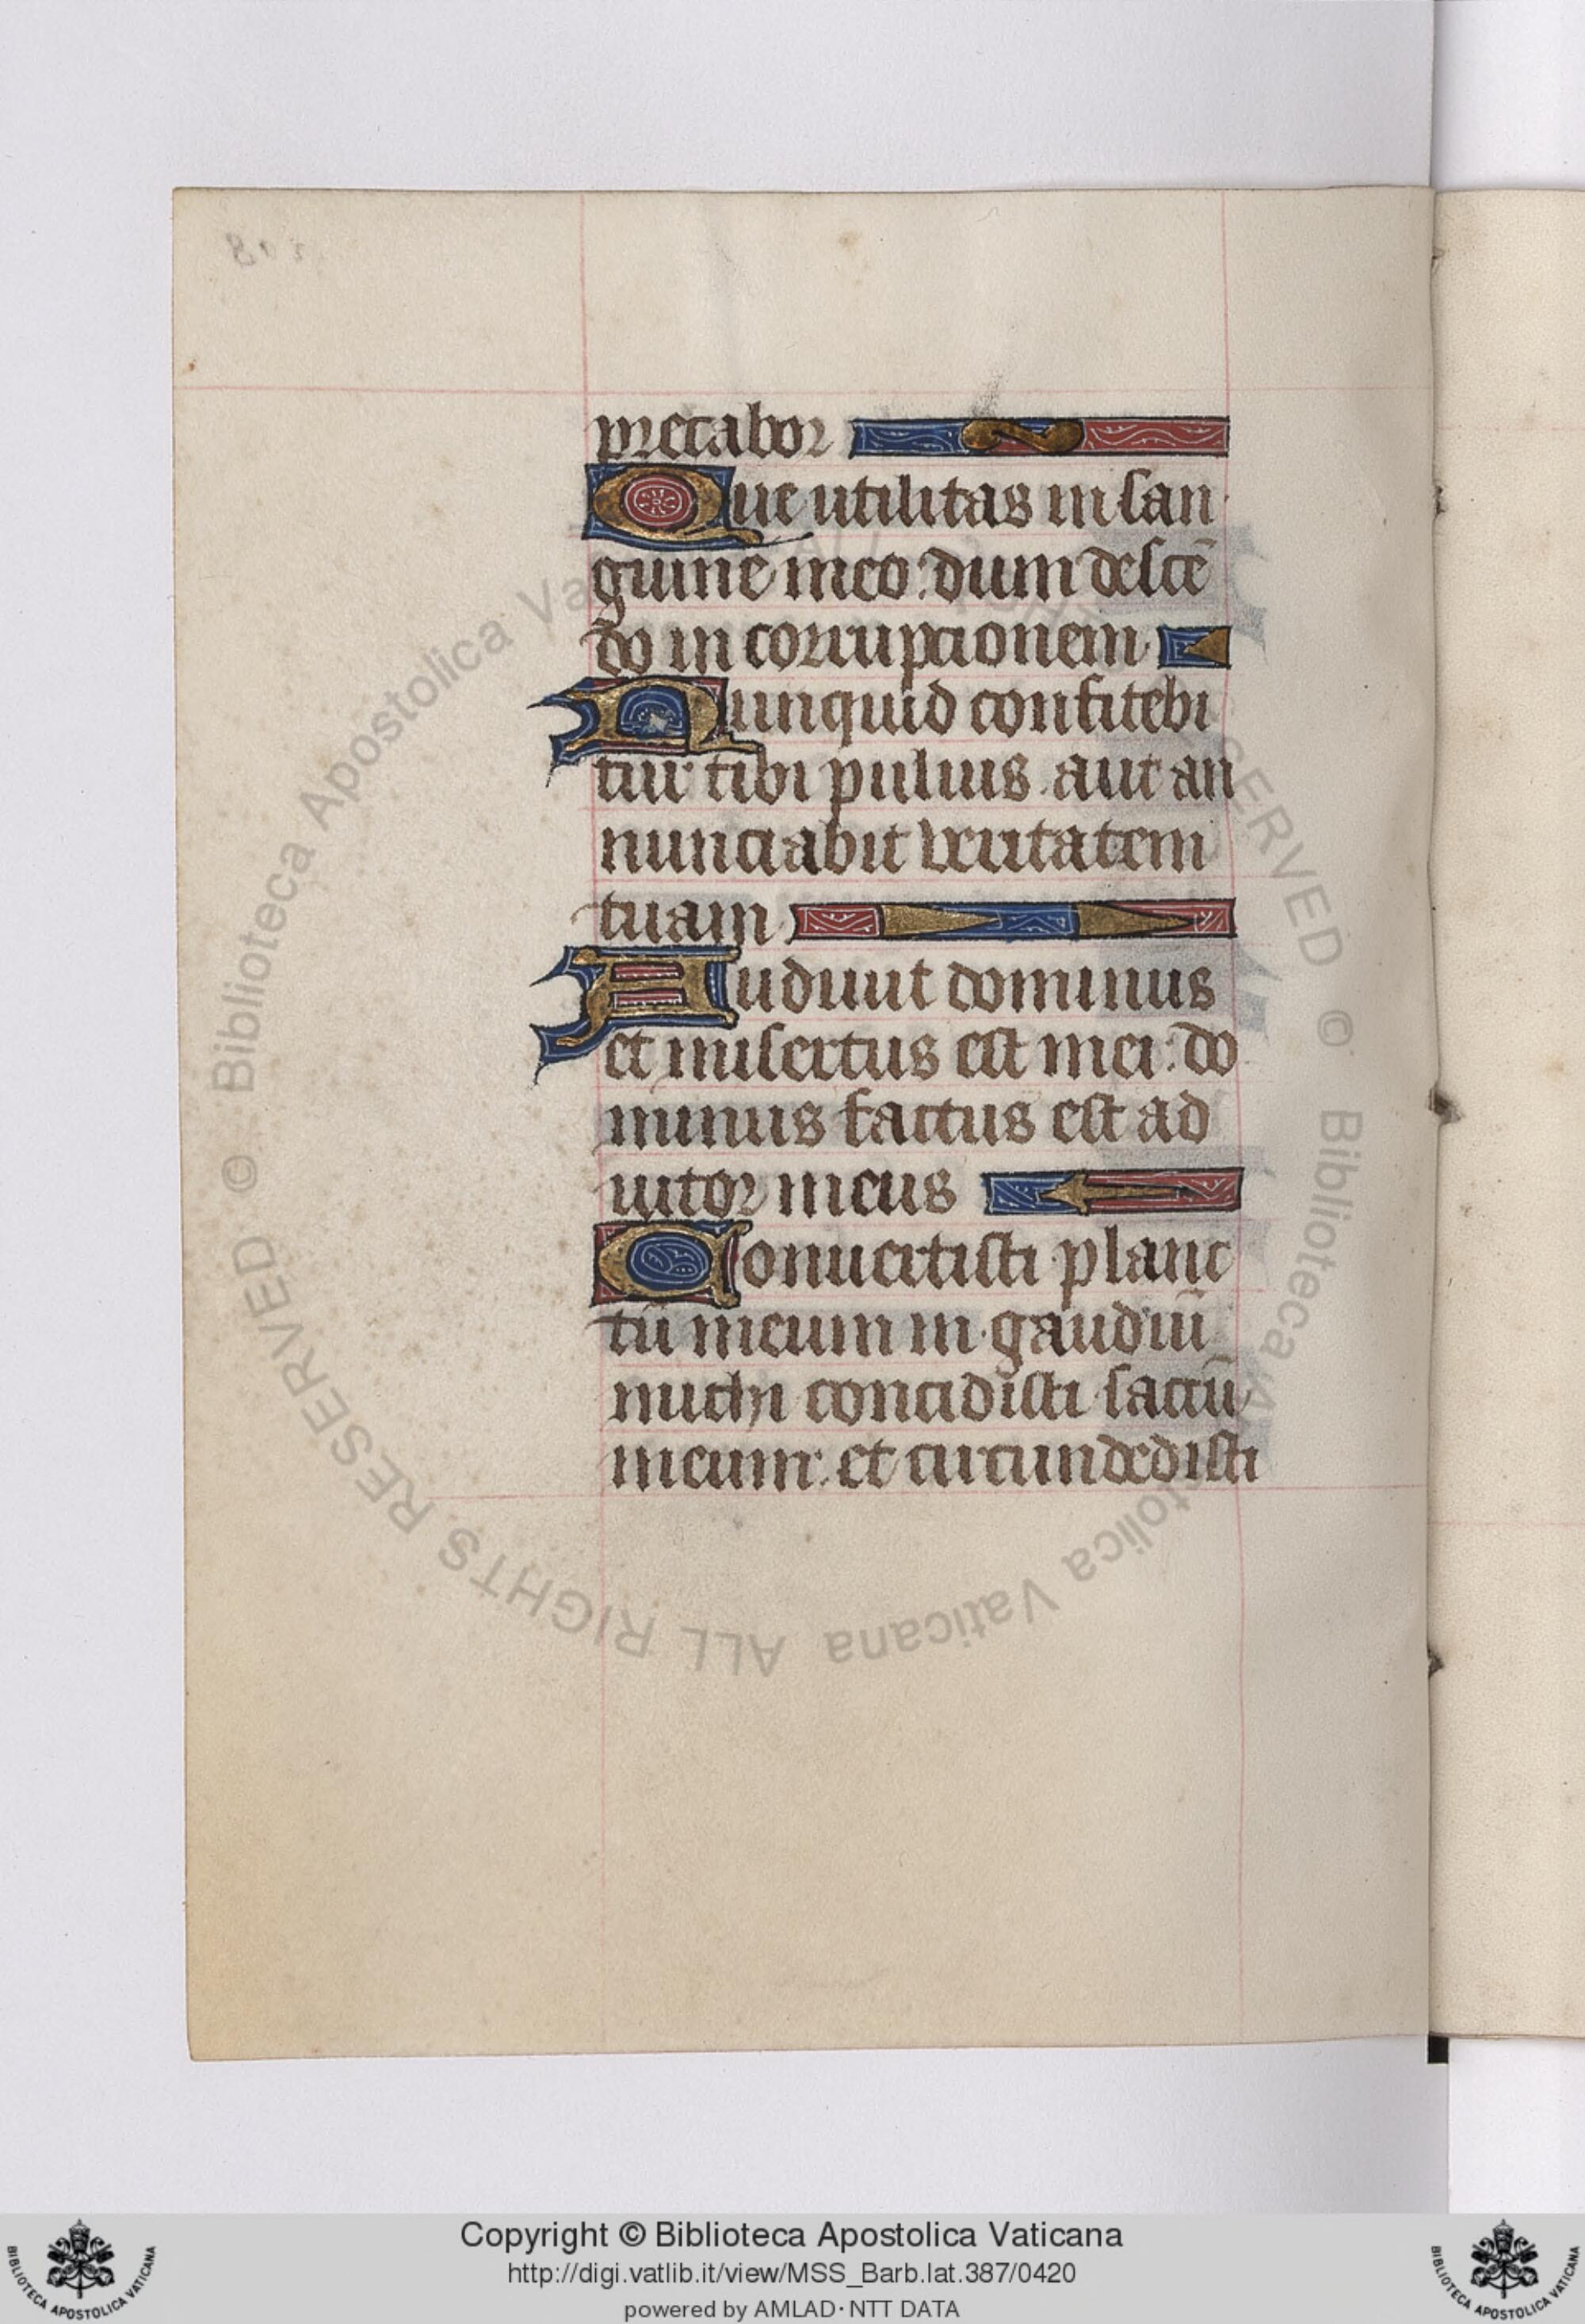 precabor
Que utilitas in san
guine meo: dum descē
do in corrupcionem
Nunquid confitebi
tur tibi puluis aut an
nunciabit ueritatem
tuam
Audiuit dominus
et misertus est mei: do
minus factus est ad
iutor meus
Conuertisti planc
tū meum in gaudiū
michi concidisti saccū
meum: et circundedisti
© Biblioteca Apostolica Vaticana ALL RIGHTS RESERVED
© Biblioteca Apostolica Vaticana ALL RIGHTS RESERVED
Copyright © Biblioteca Apostolica Vaticana
http://digi.vatlib.it/view/MSS_Barb.lat.387/0420
powered by AMLAD·NTT DATA
BIBLIOTECA APOSTOLICA VATICANA
BIBLIOTECA APOSTOLICA VATICANA